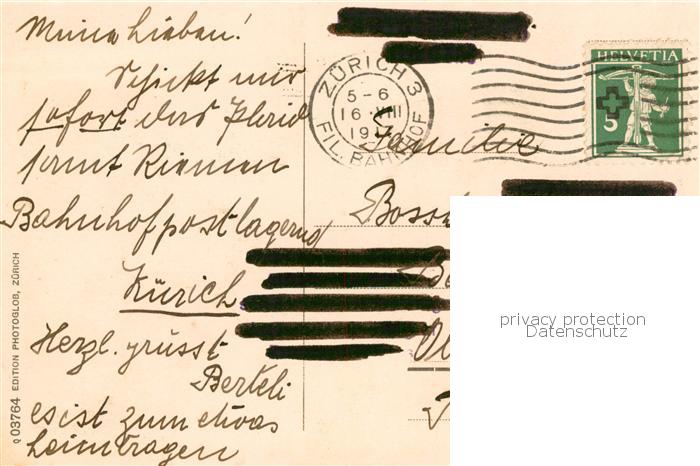 Meine Lieben!
Schickt mir
sofort das Plaid
samt Riemen
Bahnhofpostlagernd
Zürich
Herzl. grüsst
Berteli
es ist zum etwas
heimtragen
Q 03764 EDITION PHOTOGLOB, ZÜRICH
ZÜRICH 3
5-6
16 VIII
FIL. BAHNHOF
HELVETIA
5
Familie
privacy protection
Datenschutz